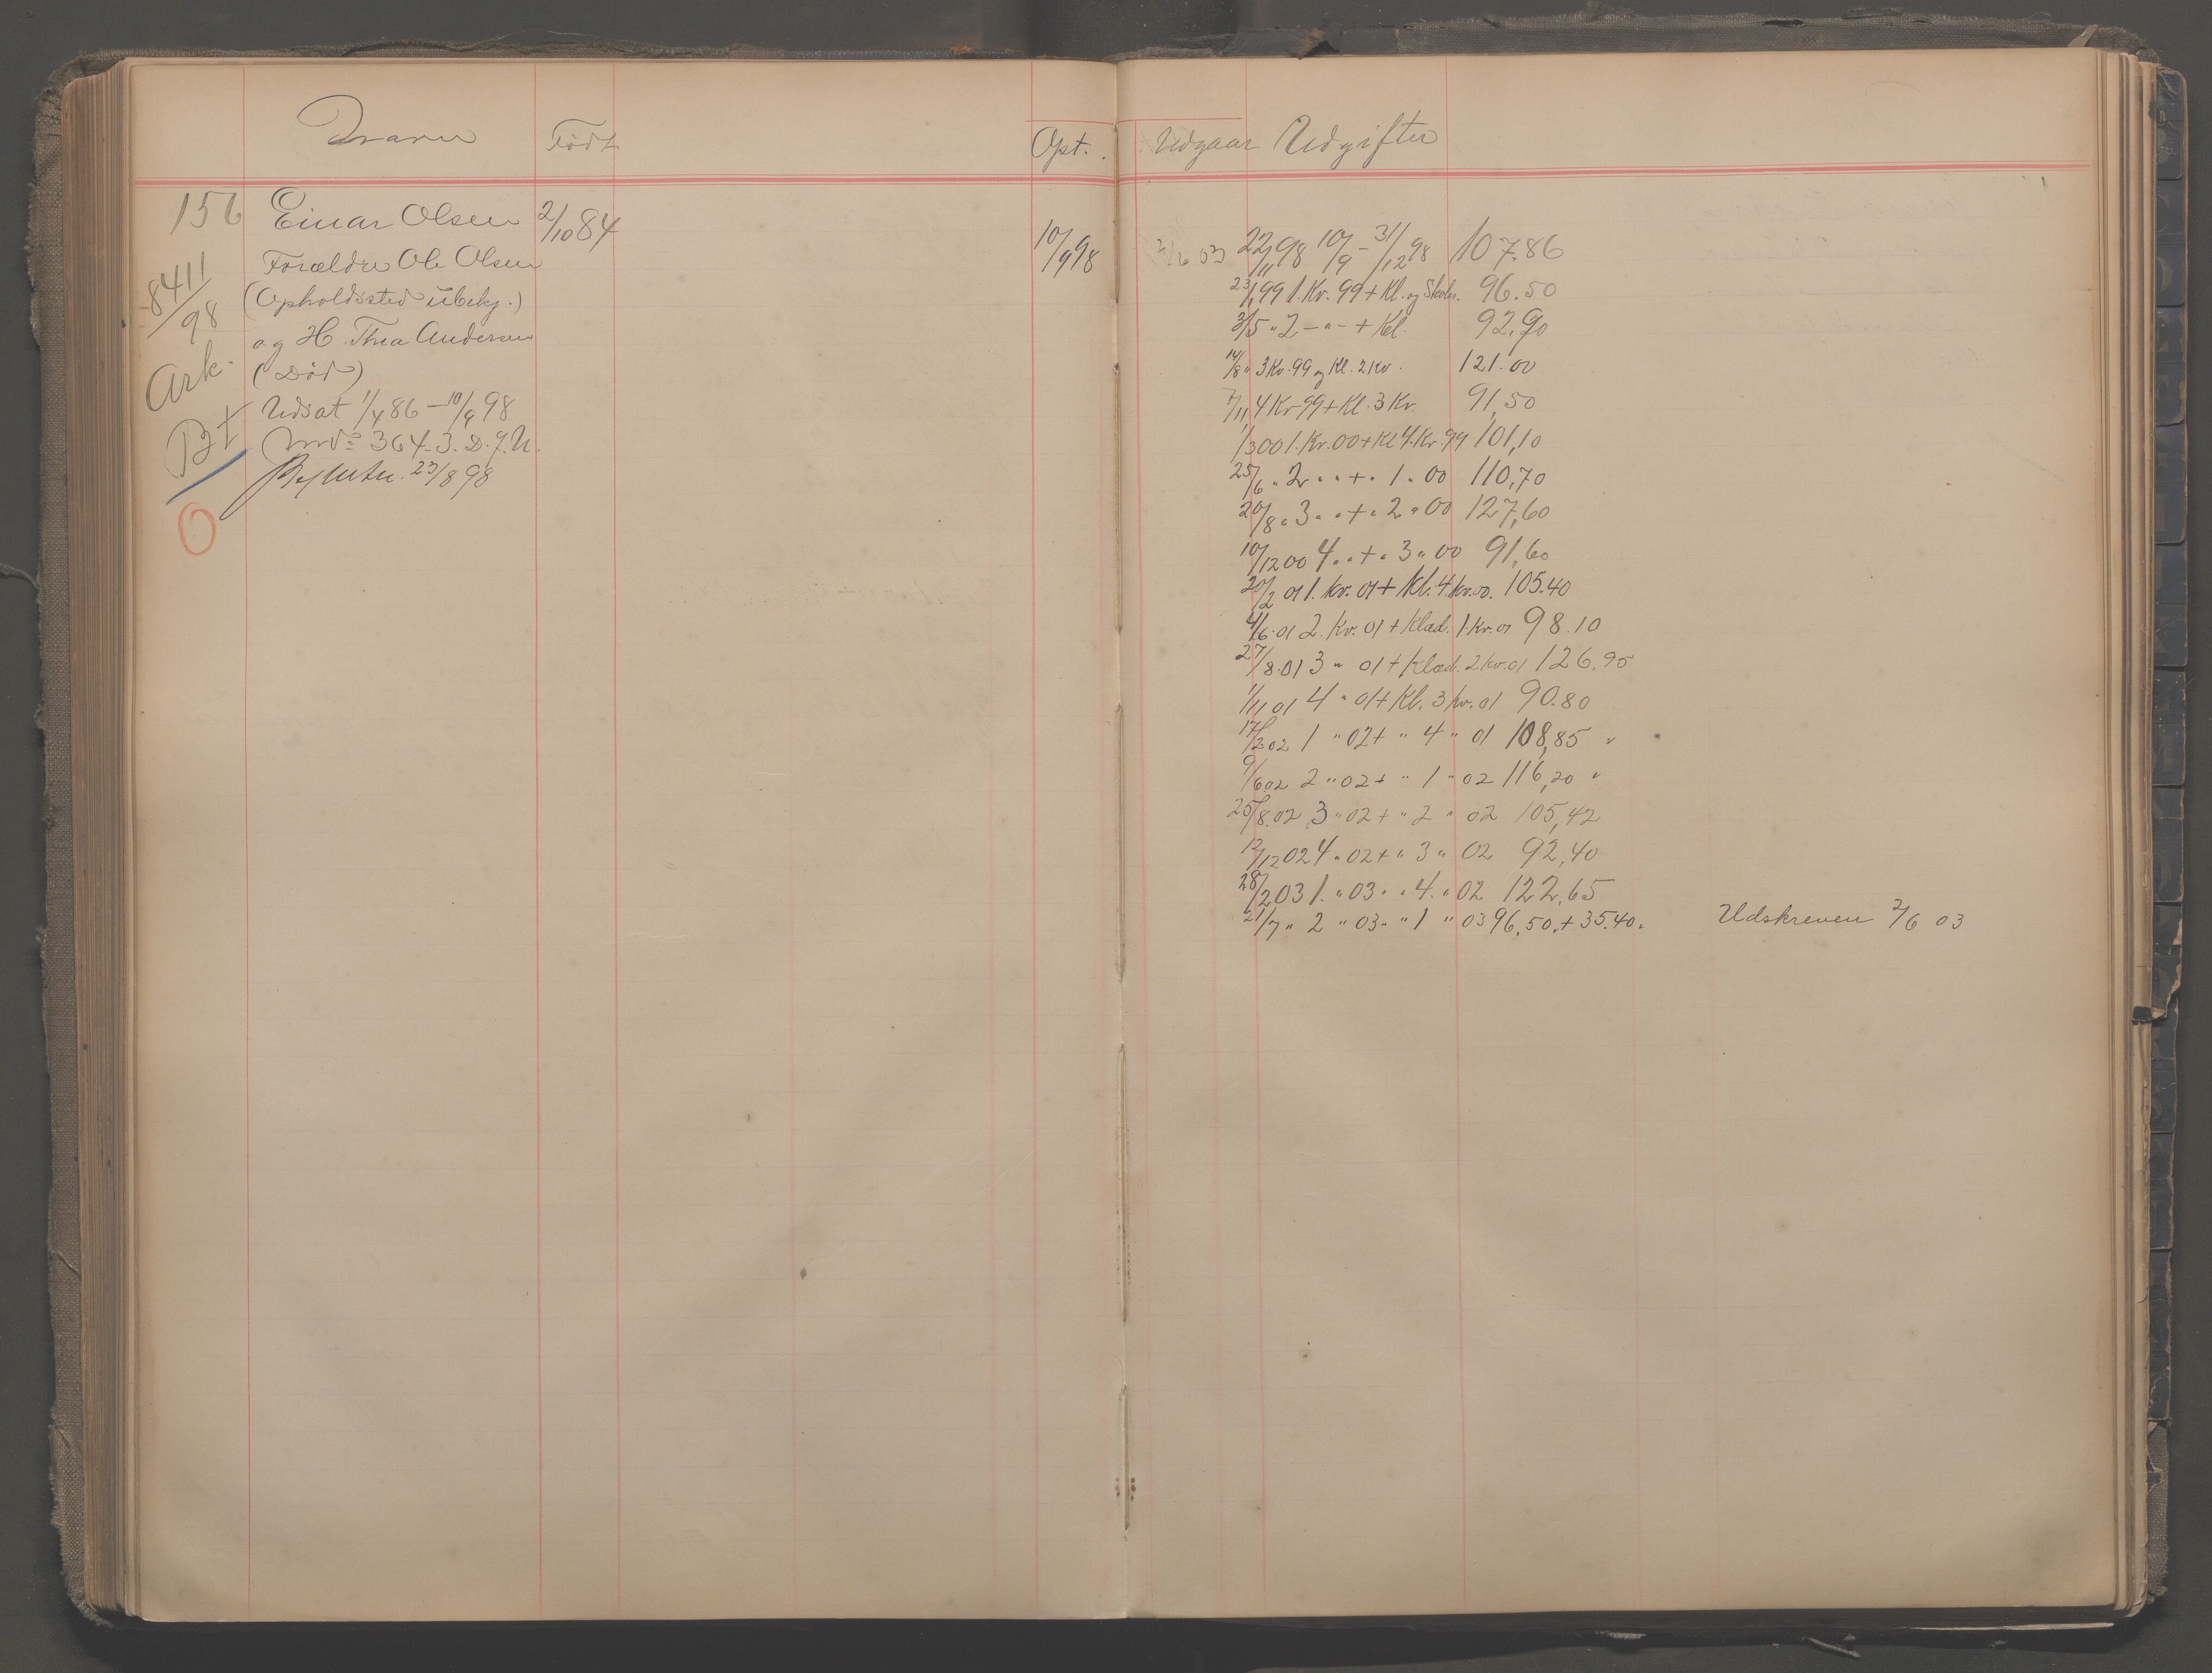 Navn Födt Opt. Udgaar Udgifter
156 Einar Olsen 2/10 84
Forældre Ole Olsen
8411/98 (Opholdssted übekj.)
og H. Thea Andersen
Ark. (Död)
Udsat 1/4 86 - 10/9 98
Bt No 364-3. D. J. N.
23/8 98
O
10/9 98
2/6 03 22/11 98 10/9 - 31/12 98 107.86
23/1 99 1. Kv. 99 + Kl. og Skoler. 96.50
3/5 " 2 - " - + Kl. 92.90
14/8 " 3 Kv. 99 og Kl. 2 Kv. 121.00
7/11 4 Kv 99 + Kl. 3 Kv. 91,50
1/3 00 1. Kv. 00 + Kl 4. Kv. 99 101,10
25/6 " 2 " " + " 1 " 00 110,70
20/8 " 3 " " + " 2 " 00 127,60
10/12 00 4 " " + " 3 " 00 91,60
20/2 01 1. Kv. 01 + Kl. 4. Kv. 00. 105.40
4/6. 01 2. Kv. 01 + Klæd. 1. Kv. 01 98.10
27/8. 01 3 " 01 + Klæd. 2 Kv. 01 126.95
1/11 01 4 " 01 + Kl. 3 Kv. 01 90.80
17/2 02 1 " 02 + " 4 " 01 108,85 "
9/6 02 2 " 02 + " 1 " 02 116,20 "
25/8. 02 3 " 02 + " 2 " 02 105,42
12/12 02 4 " 02 + " 3 " 02 92,40
28/2 03 1. " 03 " " 4. " 02 122,65
21/7 " 2 " 03 " " 1 " 03 96,50 + 35.40. Udskreven 2/6 03